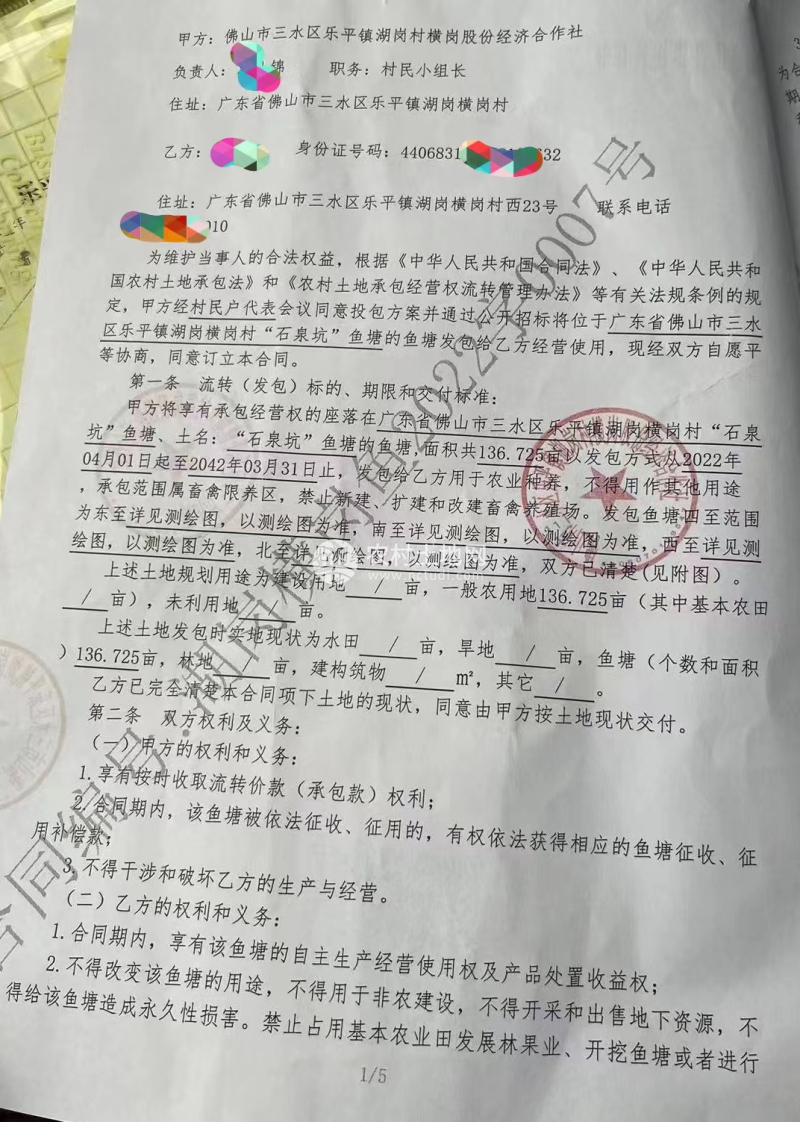 甲方：佛山市三水区乐平镇湖岗村横岗股份经济合作社
负责人： 锦 职务：村民小组长
住址：广东省佛山市三水区乐平镇湖岗横岗村
乙方： 身份证号码：4406831 632
住址：广东省佛山市三水区乐平镇湖岗横岗村西23号 联系电话
010
为维护当事人的合法权益，根据《中华人民共和国合同法》、《中华人民共和
国农村土地承包法》和《农村土地承包经营权流转管理办法》等有关法规条例的规
定，甲方经村民户代表会议同意投包方案并通过公开招标将位于广东省佛山市三水
区乐平镇湖岗横岗村“石泉坑”鱼塘的鱼塘发包给乙方经营使用，现经双方自愿平
等协商，同意订立本合同。
第一条 流转（发包）标的、期限和交付标准：
甲方将享有承包经营权的座落在广东省佛山市三水区乐平镇湖岗横岗村“石泉
坑”鱼塘、土名：“石泉坑”鱼塘的鱼塘,面积共136.725亩以发包方式从2022年
04月01日起至2042年03月31日止，发包给乙方用于农业种养，不得用作其他用途
，承包范围属畜禽限养区，禁止新建、扩建和改建畜禽养殖场。发包鱼塘四至范围
为东至详见测绘图，以测绘图为准，南至详见测绘图，以测绘图为准，西至详见测
绘图，以测绘图为准，北至详见测绘图，以测绘图为准，双方已清楚(见附图)。
上述土地规划用途为建设用地 / 亩，一般农用地136.725亩（其中基本农田
/ 亩），未利用地 / 亩。
上述土地发包时实地现状为水田 / 亩，旱地 / 亩，鱼塘（个数和面积
）136.725亩，林地 / 亩，建构筑物 / ㎡，其它 / 。
乙方已完全清楚本合同项下土地的现状，同意由甲方按土地现状交付。
第二条 双方权利及义务：
（一）甲方的权利和义务：
1.享有按时收取流转价款（承包款）权利；
2.合同期内，该鱼塘被依法征收、征用的，有权依法获得相应的鱼塘征收、征
用补偿款；
3.不得干涉和破坏乙方的生产与经营。
（二）乙方的权利和义务：
1.合同期内，享有该鱼塘的自主生产经营使用权及产品处置收益权；
2.不得改变该鱼塘的用途，不得用于非农建设，不得开采和出售地下资源，不
得给该鱼塘造成永久性损害。禁止占用基本农业田发展林果业、开挖鱼塘或者进行
1/5
合同编号：湖岗横岗鱼2022字0007号